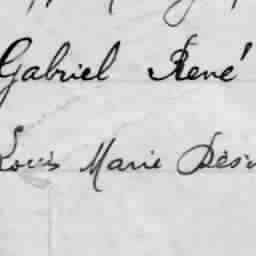 Gabriel René
Louis Marie